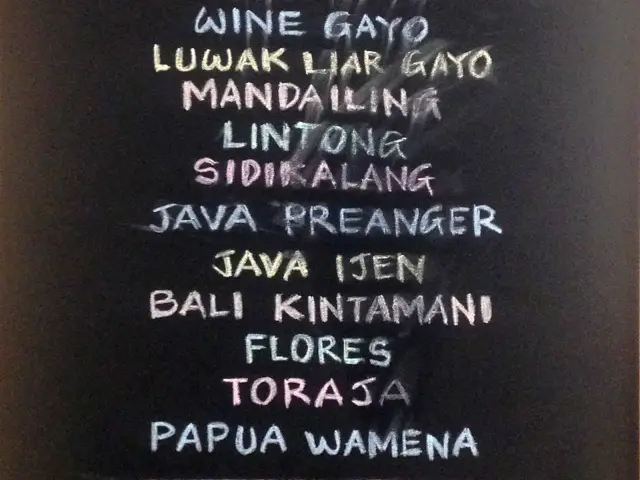 WINE GAYO
LUWAK LIAR GAYO
MANDAILING
LINTONG
SIDIKALANG
JAVA PREANGER
JAVA IJEN
BALI KINTAMANI
FLORES
TORAJA
PAPUA WAMENA